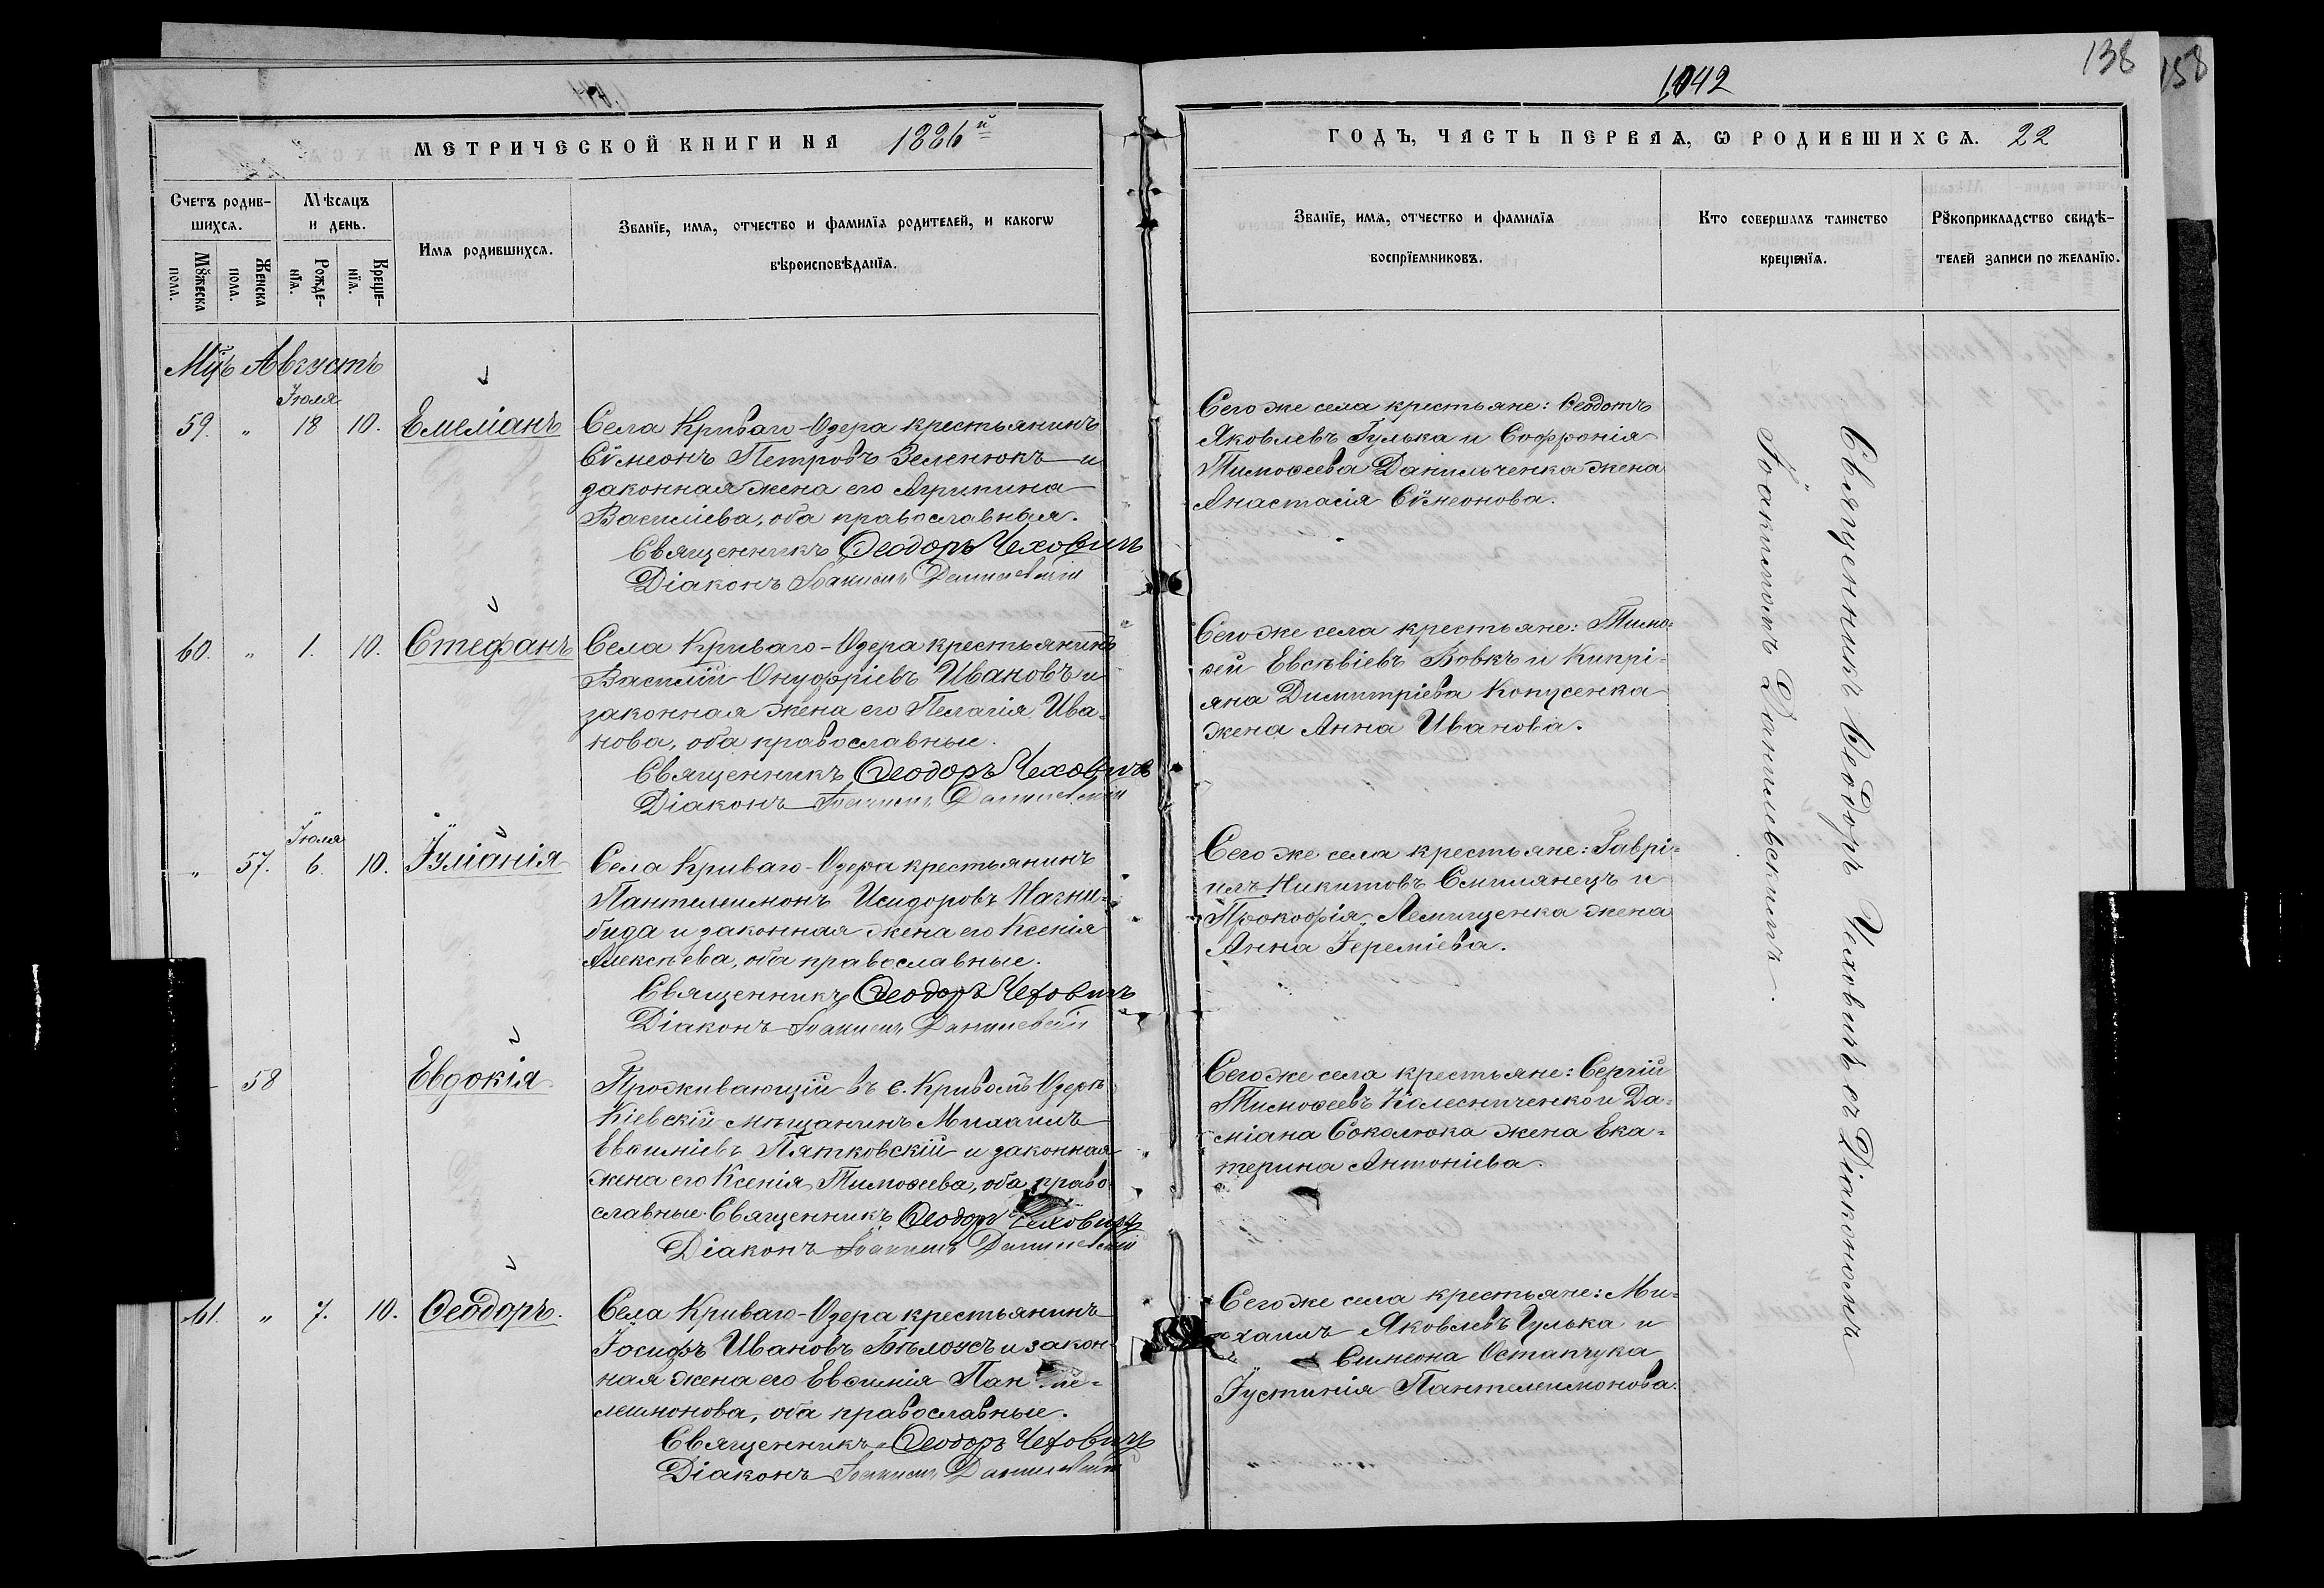 1042
138
158
МЕТРИЧЕСКОЙ КНИГИ НА 1886й
ГОДЪ, ЧАСТЬ ПЕРВАЯ, Ѡ РОДИВШИХСѦ. 22
Счетъ родив-
шихсѧ.
Мѣсѧцъ
и день.
Мꙋжеска
пола.
Женска
пола.
Рожде-
нїѧ.
Креще-
нїѧ.
Имѧ родившихсѧ.
Званїе, имѧ, отчество и фамилїѧ родителей, и какогѡ
вѣроисповѣданїѧ.
Званїе, имѧ, отчество и фамилїѧ
воспрїемниковъ.
Кто совершалъ таинство
крещенїѧ.
Рꙋкоприкладство свидѣ-
телей записи по желанїю.
Мцъ Августъ
Іюля
59. " 18 10. Емеліанъ
Села Криваго-Озера крестьянинъ
Сѵмеонъ Петровъ Зеленюкъ и
законная жена его Агрипина
Василіева, оба православныя.
Священникъ Ѳеодоръ Чеховичъ
Діаконъ Іоакимъ Данилевскій
Сего же села крестьяне: Ѳеодотъ
Яковлевъ Гулька и Софронія
Тимоѳеева Данильченка жена
Анастасія Сѵмеонова.
60. " 1. 10. Стефанъ
Села Криваго-Озера крестьянинъ
Василій Онуфріевъ Ивановъ и
законная жена его Пелагія Ива-
нова, оба православные.
Священникъ Ѳеодоръ Чеховичъ
Діаконъ Іоакимъ Данилевскій
Сего же села крестьяне: Тимо-
ѳей Евсѣвіевъ Вовкъ и Кипрі-
яна Димитріева Копусенка
жена Анна Иванова.
Іюля
" 57. 6. 10. Іуліанія
Села Криваго-Озера крестьянинъ
Пантелеимонъ Исидоровъ Нагни-
бида и законная жена его Ксенія
Алексѣева, оба православные.
Священникъ Ѳеодоръ Чеховичъ
Діаконъ Іоакимъ Данилевскій
Сего же села крестьяне: Гаврі-
илъ Никитовъ Смилянецъ и
Прокофія Лемищенка жена
Анна Іереміева.
58 Евдокія
Проживающій въ с. Кривомъ Озерѣ
Кіевскій мѣщанинъ Михаилъ
Евѳиміевъ Пятковскій и законная
жена его Ксенія Тимоѳеева, оба право-
славные. Священникъ Ѳеодоръ Чеховичъ
Діаконъ Іоакимъ Данилевскій
Сего же села крестьяне: Сергій
Тимоѳеевъ Колесниченко и Да-
міана Соколюка жена Ека-
терина Антоніева.
61. " 7. 10. Ѳеодоръ.
Села Криваго-Озера крестьянинъ
Іосифъ Ивановъ Бѣлоусъ и закон-
ная жена его Евѳимія Панте-
леимонова, оба православные.
Священникъ Ѳеодоръ Чеховичъ
Діаконъ Іоакимъ Данилевскій
Сего же села крестьяне: Ми-
хаилъ Яковлевъ Гулька и
Симеона Остапчука
Іустинія Пантелеимонова.
Священникъ Ѳеодоръ Чеховичъ съ Діакономъ
Іоакимомъ Данилевскимъ.